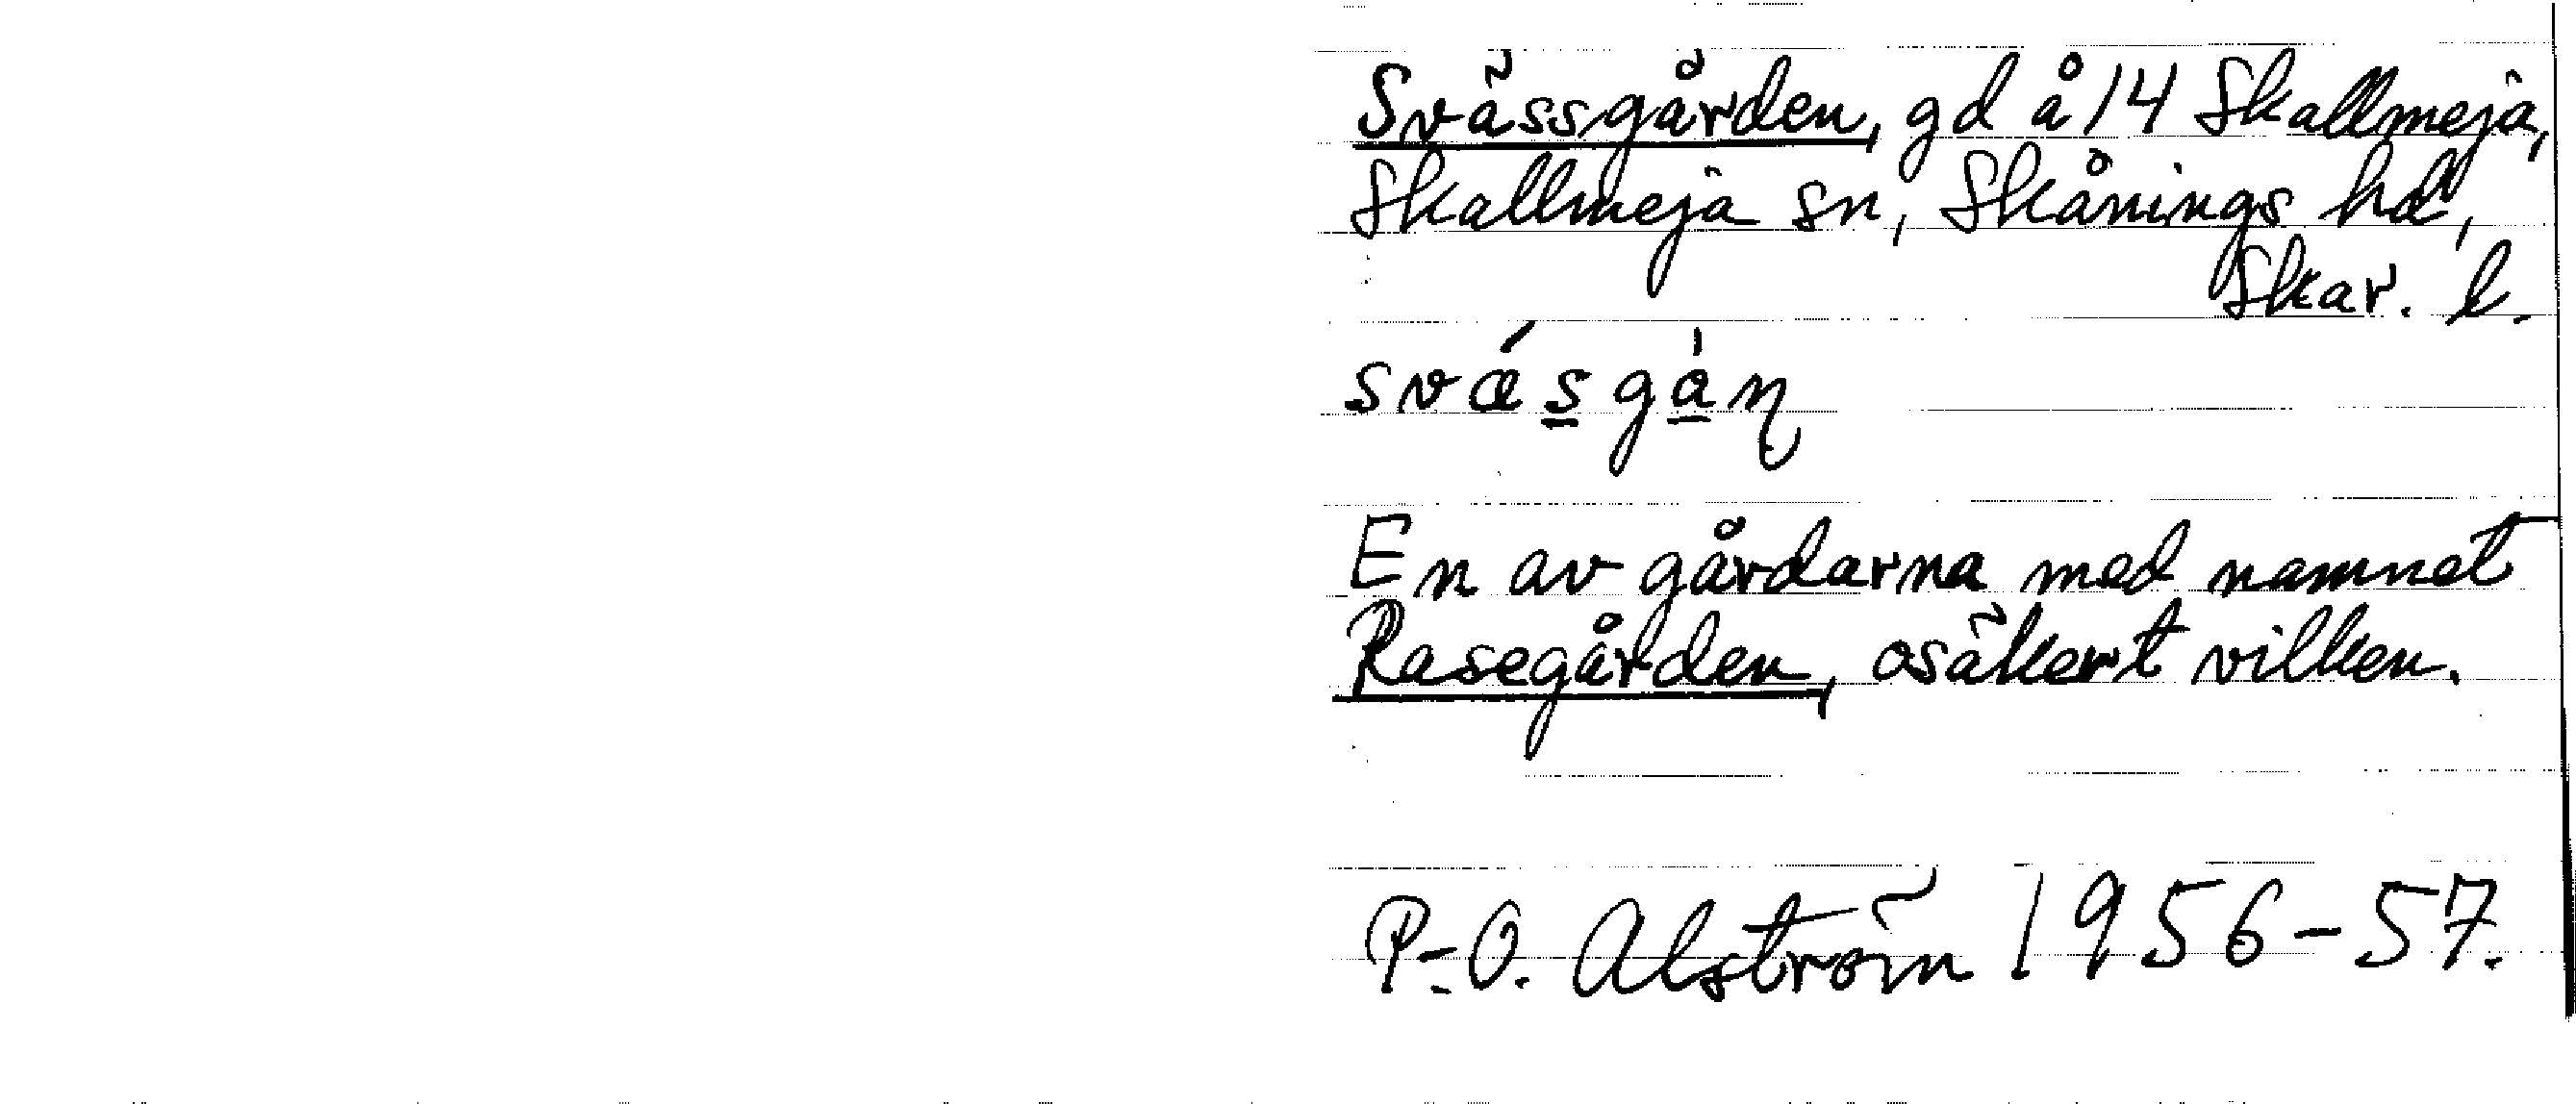 Svässgården, gd å 14 Skallmeja,
Skallmeja sn, Skånings hd,
Skar. l.
svǽs̲gà̲ɳ
En av gårdarna med namnet
Rasegården, osäkert vilken.
P-O. Alström 1956-57.